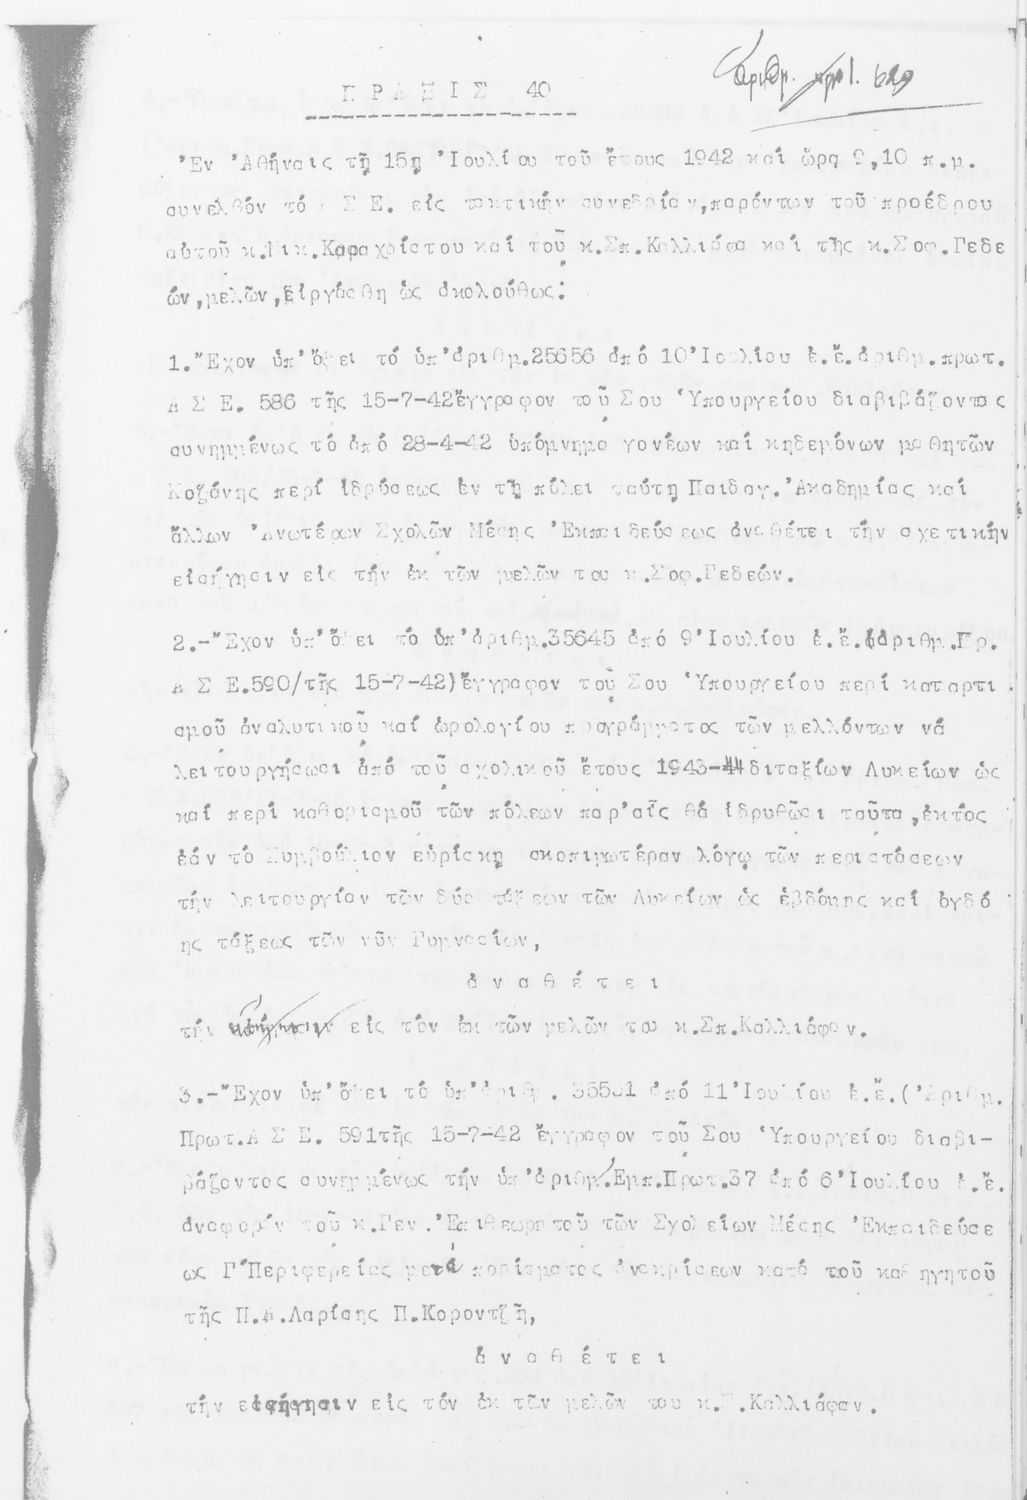 Ἀριθμ. πρωτ. 629
ΠΡΑΞΙΣ 40
Ἐν Ἀθήναις τῇ 15η Ἰουλίου τοῦ ἔτους 1942 καί ὥρα 9,10 π.μ.
συνελθόν τό Α Σ Ε. εἰς τακτικήν συνεδρίαν,παρόντων τοῦ προέδρου
αὐτοῦ κ.Νικ.Καραχρίστου καί τοῦ κ.Σπ.Καλλιάφα καί τῆς κ.Σοφ.Γεδε
ών,μελῶν,εἰργάσθη ὡς ἀκολούθως:
1.Ἔχον ὑπ'ὄψει τό ὑπ'ἀριθμ.25656 ἀπό 10 Ἰουλίου ἐ.ἔ.ἀριθμ.πρωτ.
Α Σ Ε. 586 τῆς 15-7-42 ἔγγραφον τοῦ Σου Ὑπουργείου διαβιβάζοντας
συνημμένως τό ἀπό 28-4-42 ὑπόμνημα γονέων καί κηδεμόνων μαθητῶν
Κοζάνης περί ἱδρύσεως ἐν τῇ πόλει ταύτη Παιδαγ.Ἀκαδημίας καί
ἄλλων Ἀνωτέρων Σχολῶν Μέσης Ἐκπαιδεύσεως ἀναθέτει τήν σχετικήν
εἰσήγησιν εἰς τήν ἐκ τῶν μελῶν του κ.Σοφ.Γεδεών.
2.-Ἔχον ὑπ'ὄψει τό ὑπ'ἀριθμ.35645 ἀπό 9 Ἰουλίου ἐ.ἔ.(ἀριθμ.Πρ.
Α Σ Ε.590/τῆς 15-7-42)ἔγγραφον τοῦ Σου Ὑπουργείου περί καταρτι
σμοῦ ἀναλυτικοῦ καί ὡρολογίου προγράμματος τῶν μελλόντων νά
λειτουργήσωσι ἀπό τοῦ σχολικοῦ ἔτους 1943-44 διταξίων Λυκείων ὡς
καί περί καθορισμοῦ τῶν πόλεων παρ'αἷς θά ἱδρυθῶσι ταῦτα,ἐκτός
ἐάν τό Συμβούλιον εὑρίσκη σκοπιμωτέραν λόγῳ τῶν περιστάσεων
τήν λειτουργίαν τῶν δύο τάξεων τῶν Λυκείων ὡς ἑβδόμης καί ὀγδό
ης τάξεως τῶν νῦν Γυμνασίων,
ἀναθέτει
τήν εἰσήγησιν εἰς τόν ἐκ τῶν μελῶν του κ.Σπ.Καλλιάφαν.
3.-Ἔχον ὑπ'ὄψει τό ὑπ'ἀριθμ. ἀπό 11 Ἰουλίου ἐ.ἔ.(Ἀριθμ.
Πρωτ.Α Σ Ε. 591 τῆς 15-7-42 ἔγγραφον τοῦ Σου Ὑπουργείου διαβι-
βάζοντος συνημμένως τήν ὑπ'ἀριθμ.Εμπ.Πρωτ.37 ἀπό 6 Ἰουλίου ἐ.ἔ.
ἀναφοράν τοῦ κ.Γεν.Ἐπιθεωρητοῦ τῶν Σχολείων Μέσης Ἐκπαιδεύσε
ως Γ'Περιφερείας μετά πορίσματος ἀνακρίσεων κατά τοῦ καθηγητοῦ
τῆς Π.Α.Λαρίσης Π.Κοροντζῆ,
ἀναθέτει
τήν εἰσήγησιν εἰς τόν ἐκ τῶν μελῶν του κ.Σ.Καλλιάφαν.